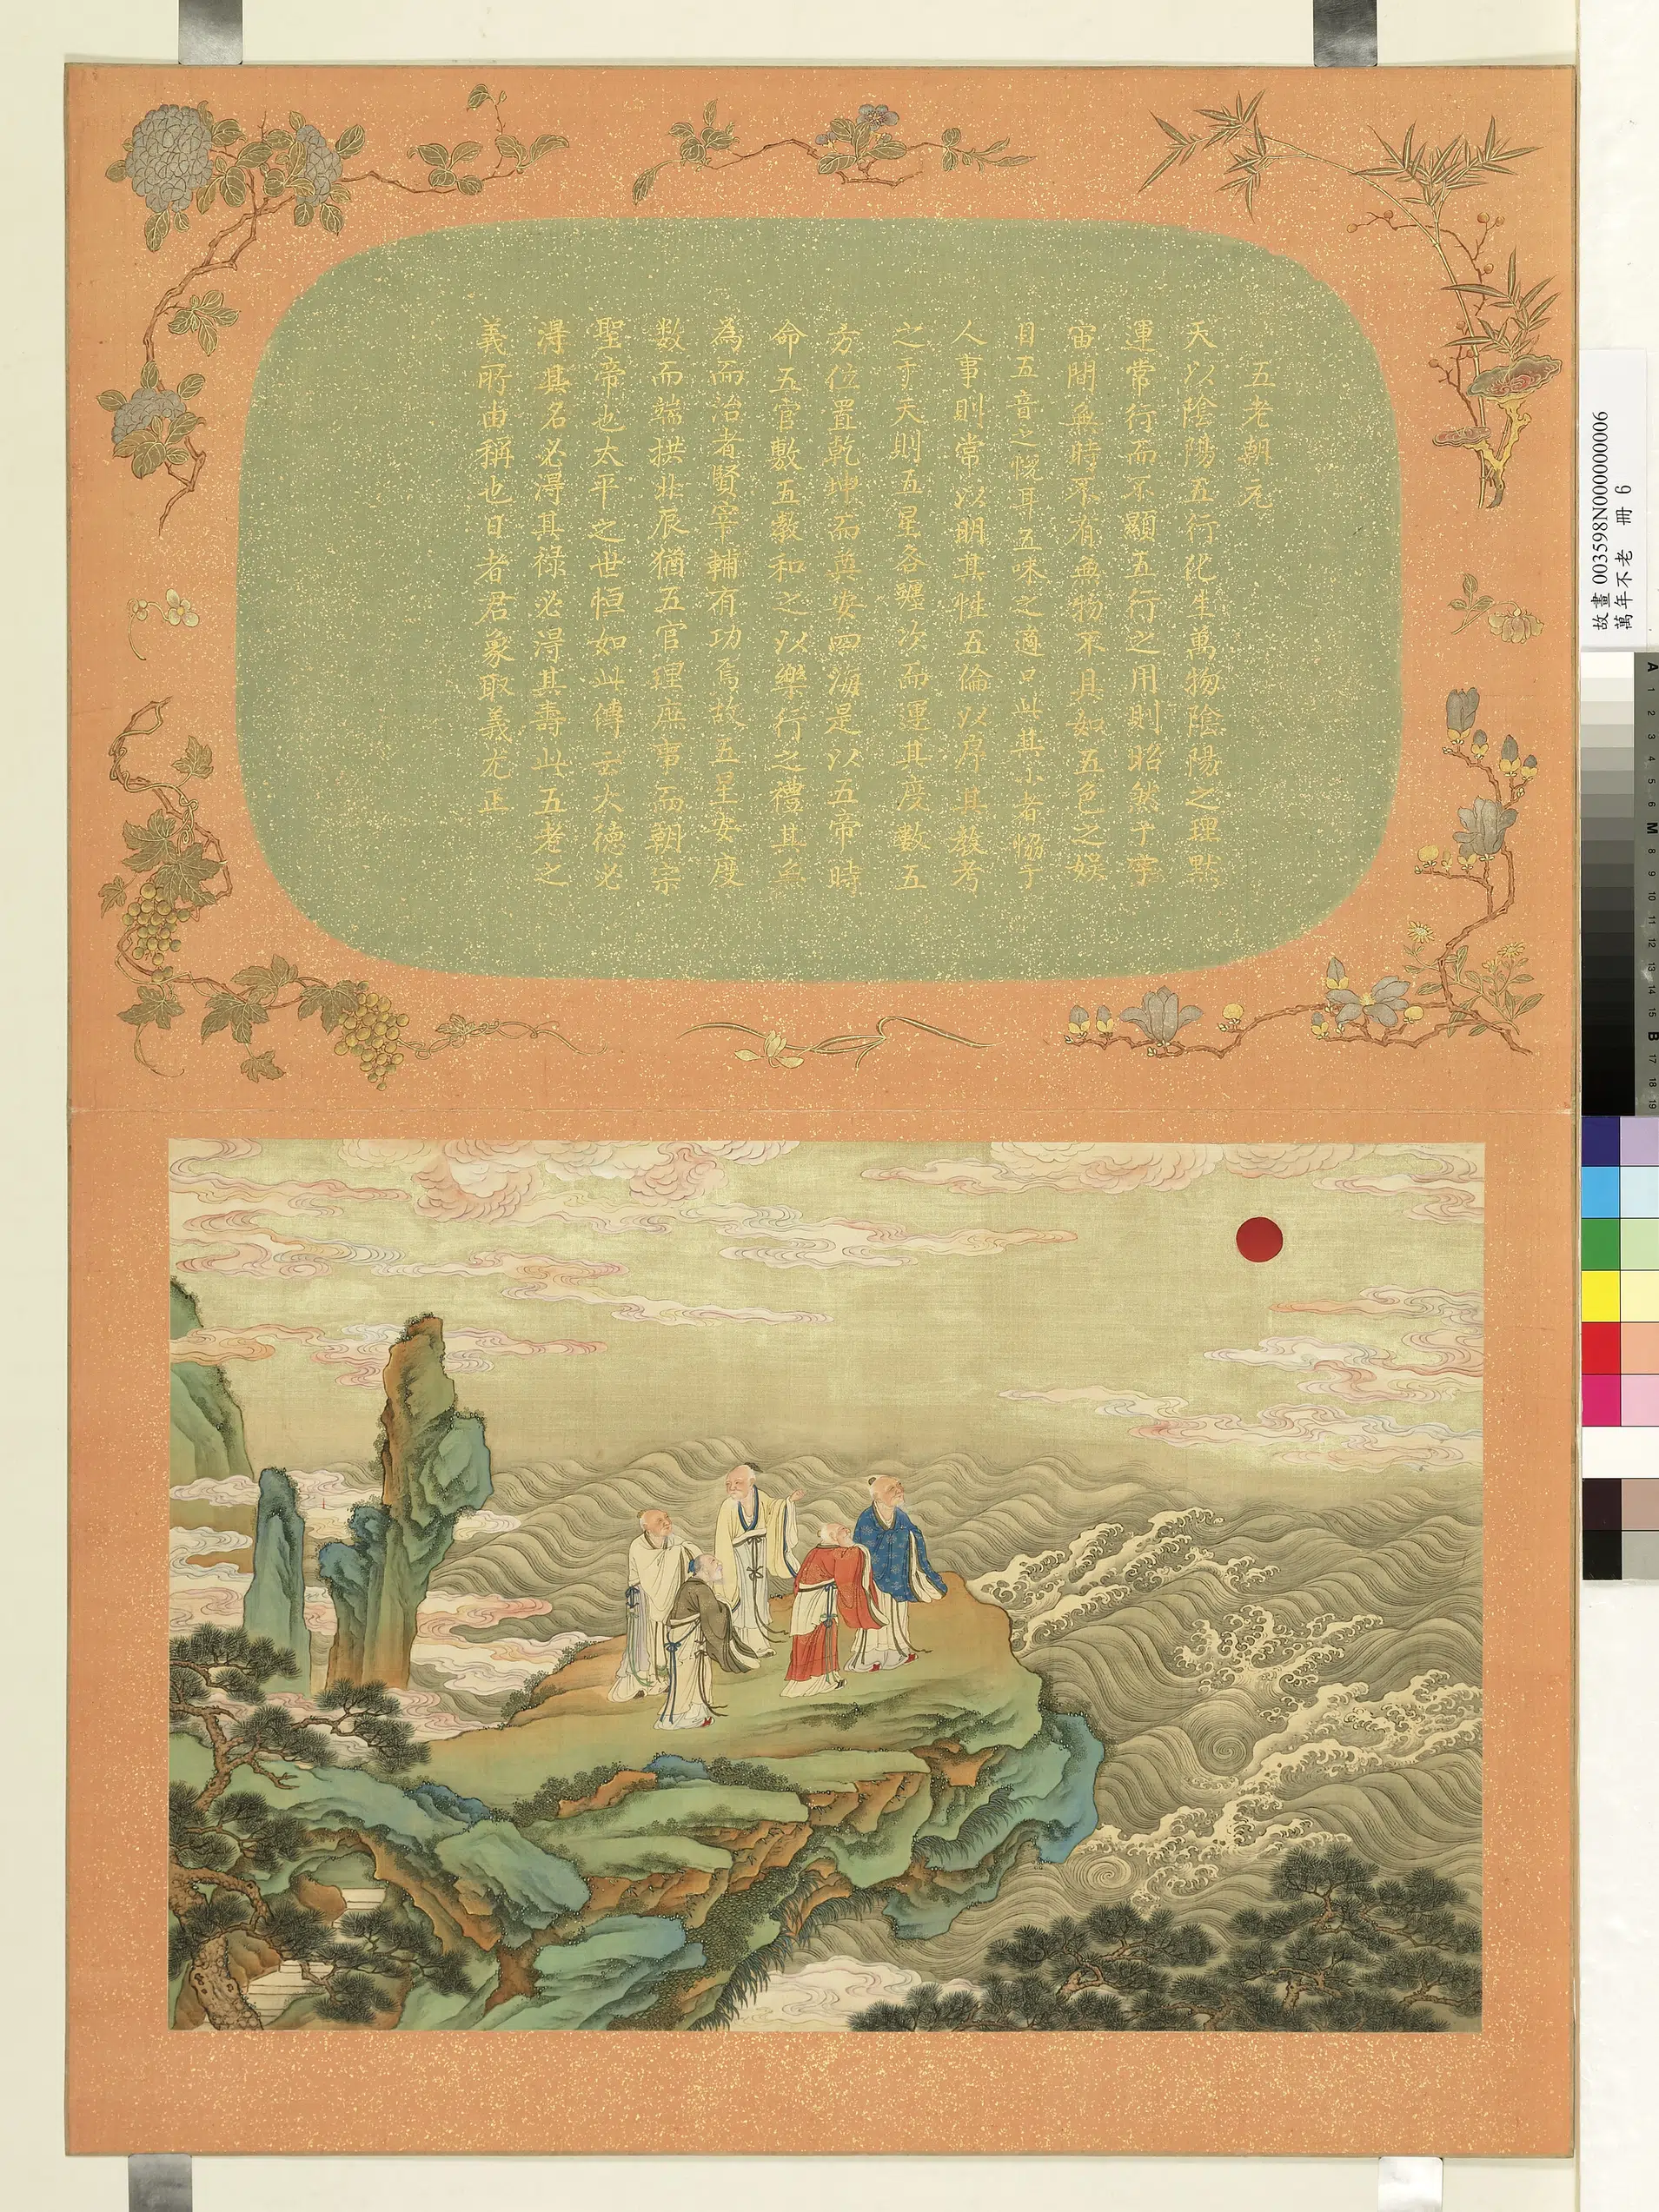 五老朝元
天以陰陽五行化生萬物陰陽之理默
運常行而不顯五行之用則昭然于宇
宙間無時不有無物不具如五色之娱
目五音之悅耳五味之適口此其小者恊于
人事則常以明其性五倫以序其教考
之于天則五星各躔次而運其度數五
方位置乾坤而奠安四海是以五帝時
命五官敷五教和之以樂行之禮其無
為而治者賢宰輔有功焉故五星安度
数而端拱北辰猶五官理庶事而朝宗
聖帝也太平之世恒如此傳云大德必
淂其名必淂其祿必淂其壽此五老之
義所由稱也日者君象取義尤正
故畫 003598N000000006
萬年不老 冊 6
A 1 2 3 4 5 6 M 8 9 10 11 12 13 14 15 B 17 18 19